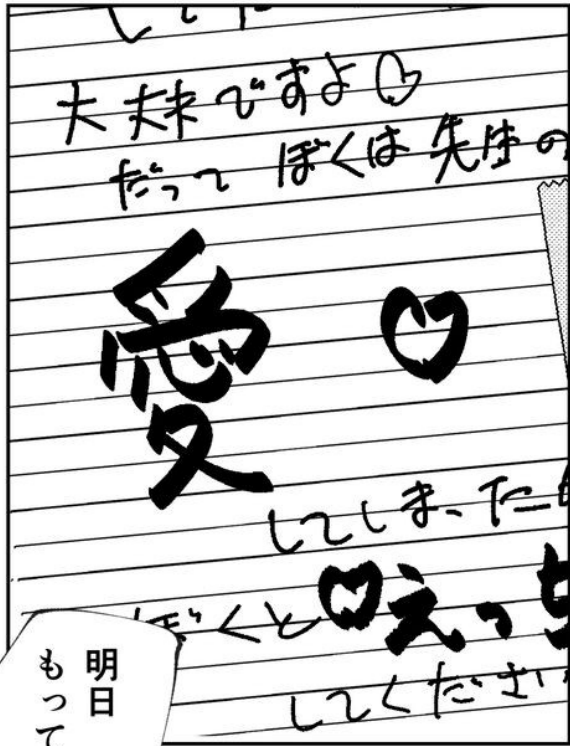 大丈夫ですよ♡
だって ぼくは 先生の
愛 ♡
してしまった
ぼくと♡えっち
してください
明日
もって